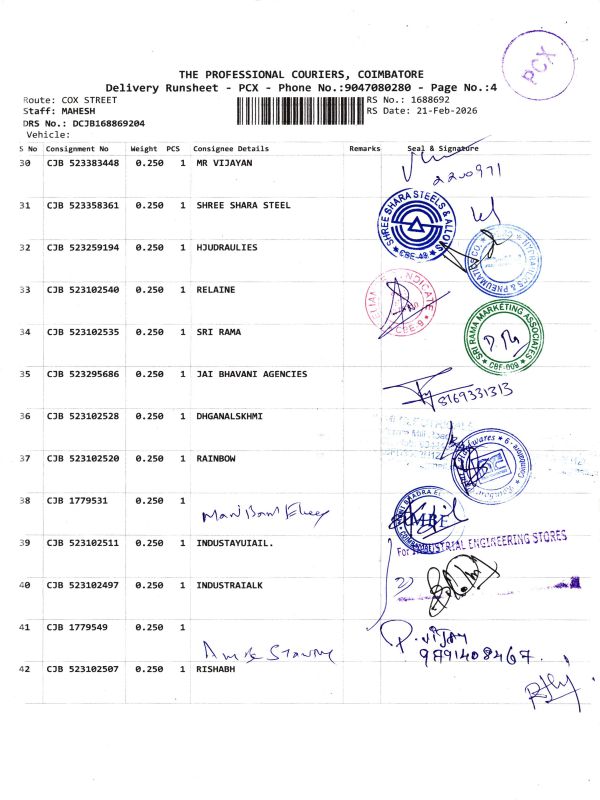 PCX
THE PROFESSIONAL COURIERS, COIMBATORE
Delivery Runsheet - PCX - Phone No.:9047080280 - Page No.:4
Route: COX STREET
RS No.: 1688692
Staff: MAHESH
RS Date: 21-Feb-2026
DRS No.: DCJB168869204
Vehicle:
S No Consignment No Weight PCS Consignee Details Remarks Seal & Signature
30 CJB 523383448 0.250 1 MR VIJAYAN
2200971
31 CJB 523358361 0.250 1 SHREE SHARA STEEL
SHREE SHARA STEELS & ALLOYS
CBE-48
32 CJB 523259194 0.250 1 HJUDRAULIES
HYDRAULICS & PNEUMATICS CO.
33 CJB 523102540 0.250 1 RELAINE
SYNDICATE
CBE-9
34 CJB 523102535 0.250 1 SRI RAMA
SRI RAMA MARKETING ASSOCIATES
CBE-009
35 CJB 523295686 0.250 1 JAI BHAVANI AGENCIES
8169331313
36 CJB 523102528 0.250 1 DHGANALSKHMI
37 CJB 523102520 0.250 1 RAINBOW
Coimbatore - 9
38 CJB 1779531 0.250 1
39 CJB 523102511 0.250 1 INDUSTAYUIAIL.
For INDUSTRIAL ENGINEERING STORES
40 CJB 523102497 0.250 1 INDUSTRAIALK
41 CJB 1779549 0.250 1
P. vijay
9791408467.
42 CJB 523102507 0.250 1 RISHABH